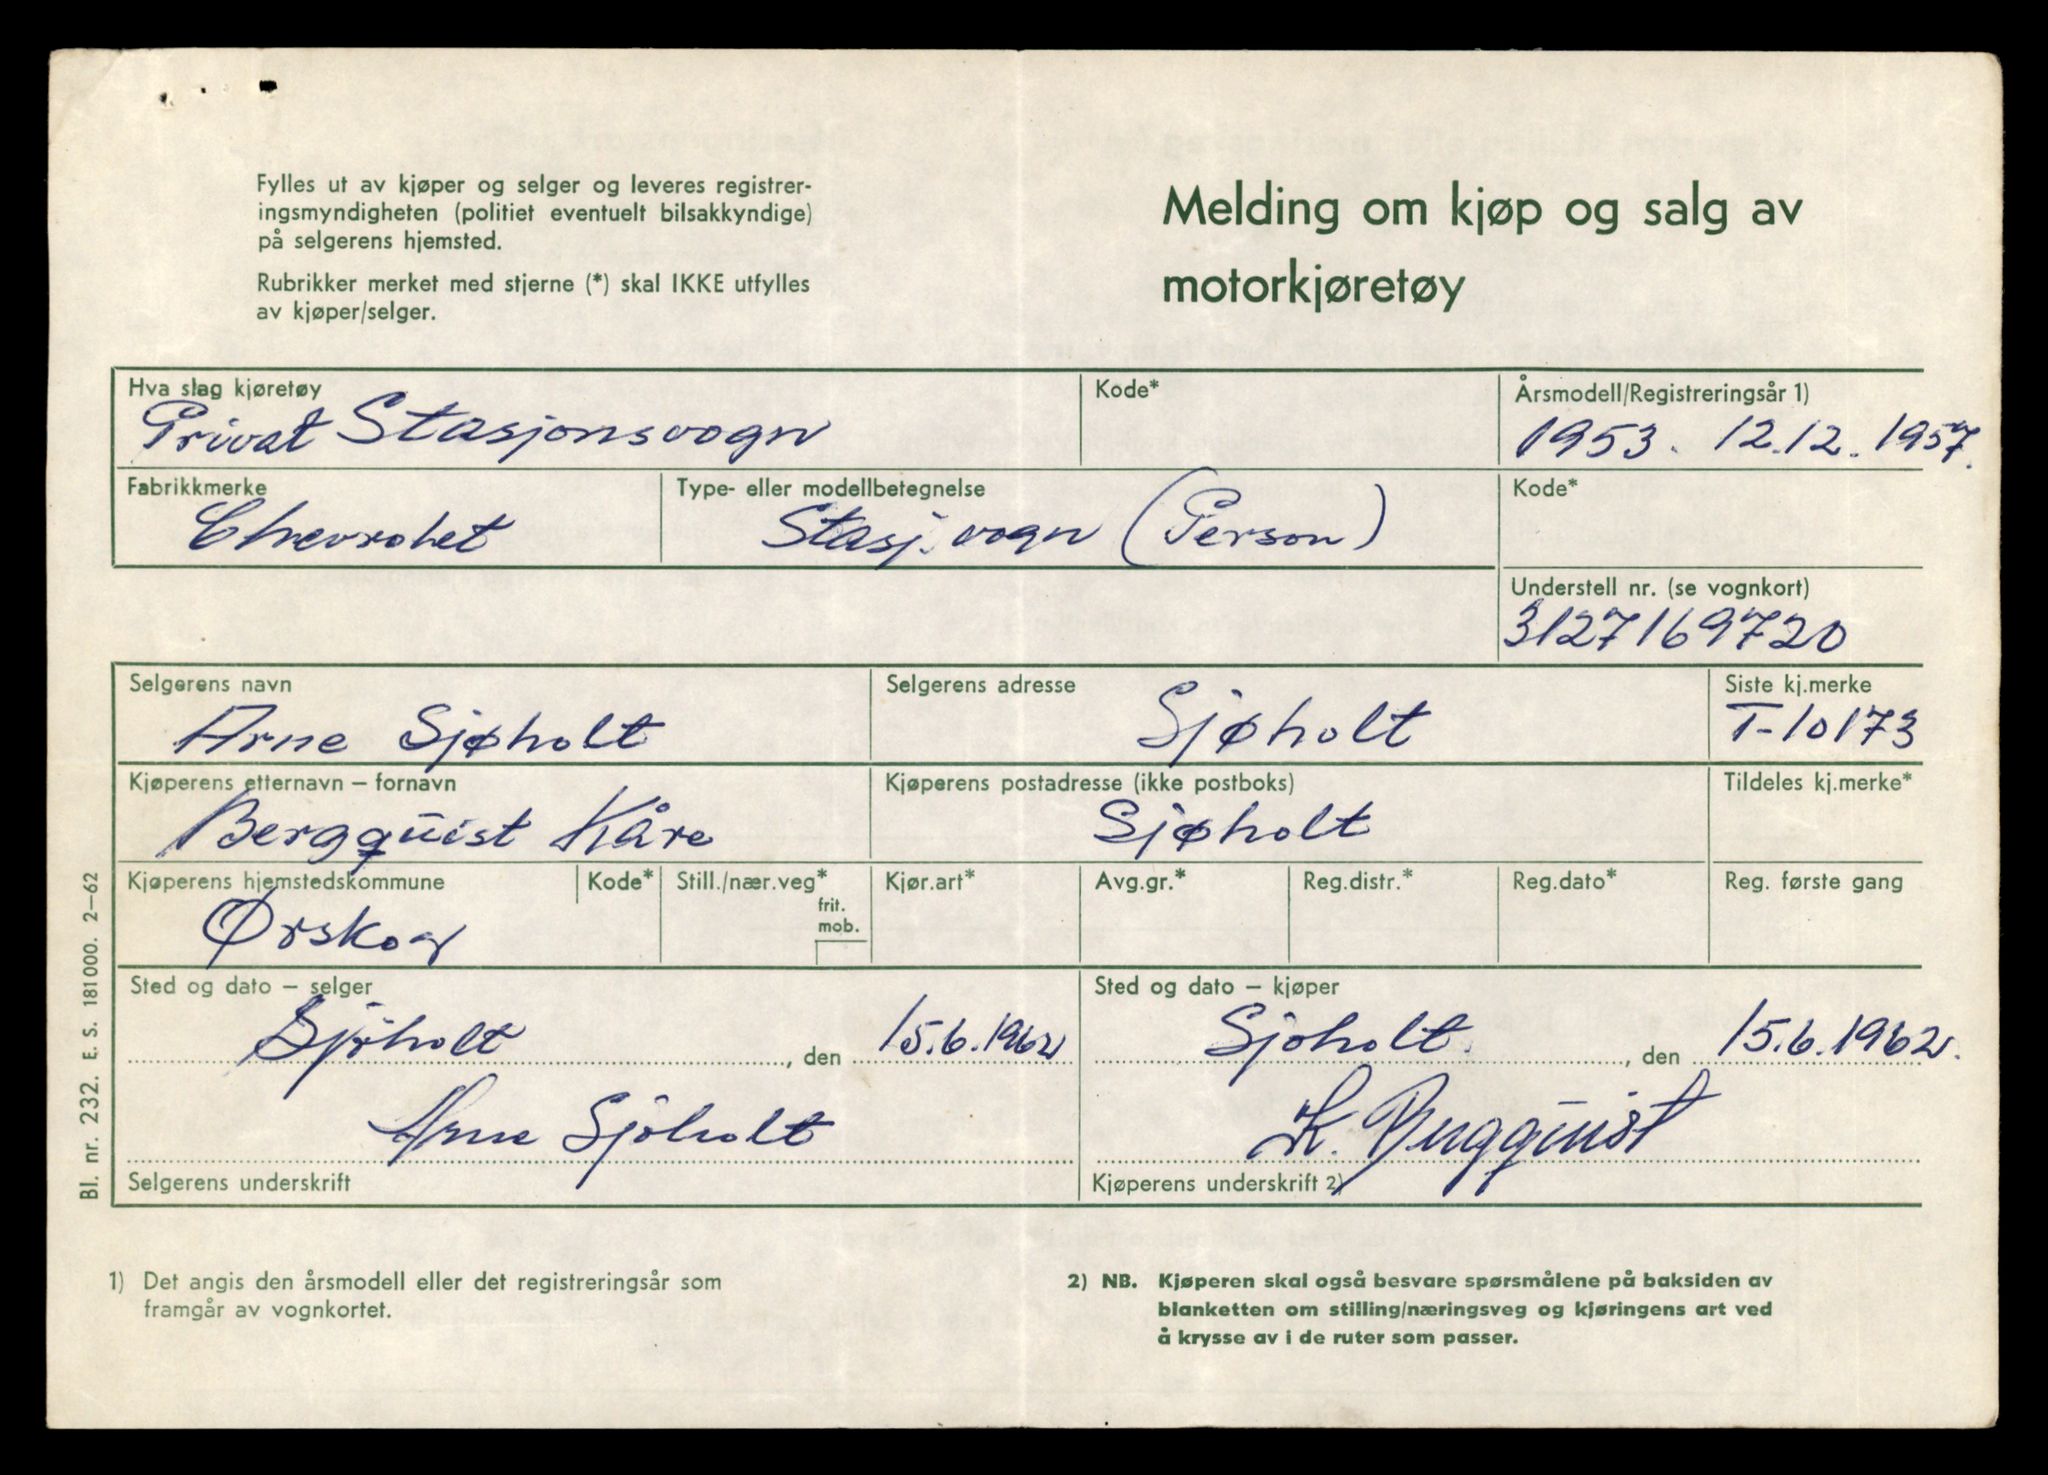 Fylles ut av kjøper og selger og leveres registrer-
ingsmyndigheten (politiet eventuelt bilsakkyndige)
på selgerens hjemsted.
Rubrikker merket med stjerne (*) skal IKKE utfylles
av kjøper/selger.
Melding om kjøp og salg av
motorkjøretøy
Hva slag kjøretøy
Privat Stasjonsvogn
Kode*
Årsmodell/Registreringsår 1)
1953. 12.12.1957.
Fabrikkmerke
Chevrolet
Type- eller modellbetegnelse
Stasj.vogn (Person)
Kode*
Understell nr. (se vognkort)
3127169720
Selgerens navn
Arne Sjøholt
Selgerens adresse
Sjøholt
Siste kj.merke
T-10173
Kjøperens etternavn – fornavn
Bergquist Kåre
Kjøperens postadresse (ikke postboks)
Sjøholt
Tildeles kj.merke*
Kjøperens hjemstedskommune
Ørskog
Kode*
Still./nær.veg*
frit.
mob.
Kjør.art*
Avg.gr.*
Reg.distr.*
Reg.dato*
Reg. første gang
Sted og dato – selger
Sjöholt, den 15.6.1962
Arne Sjöholt
Selgerens underskrift
Sted og dato – kjøper
Sjøholt, den 15.6.1962.
K. Bergquist
Kjøperens underskrift 2)
Bl. nr. 232. E. S. 181000. 2–62
1) Det angis den årsmodell eller det registreringsår som
framgår av vognkortet.
2) NB. Kjøperen skal også besvare spørsmålene på baksiden av
blanketten om stilling/næringsveg og kjøringens art ved
å krysse av i de ruter som passer.